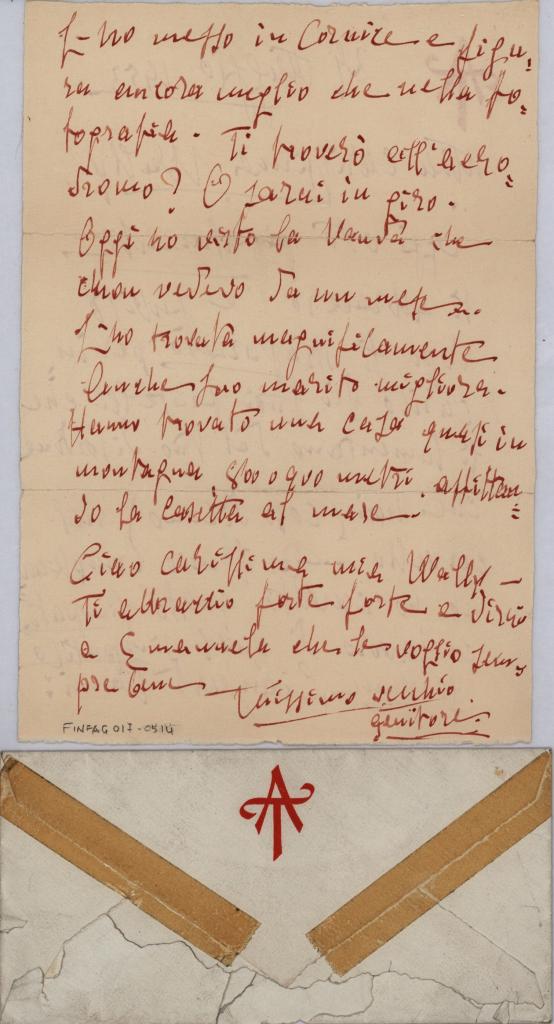 L'ho messo in Cornice e figu=
ra ancora meglio che nella fo=
tografia. Ti troverò all'aero=
dromo? O sarai in giro.
Oggi ho visto la Vanda che
non vedevo da un mese.
L'ho trovata magnificamente
anche suo marito migliora.
Hanno trovato una casa quasi in
montagna, 800 o 900 metri, affittan=
do la casetta al mare.
Ciao carissima mia Wally—
Ti abbraccio forte forte e dirai
a Emanuela che le voglio sem=
pre bene
vecchio
genitore.
FINFAG017-0514